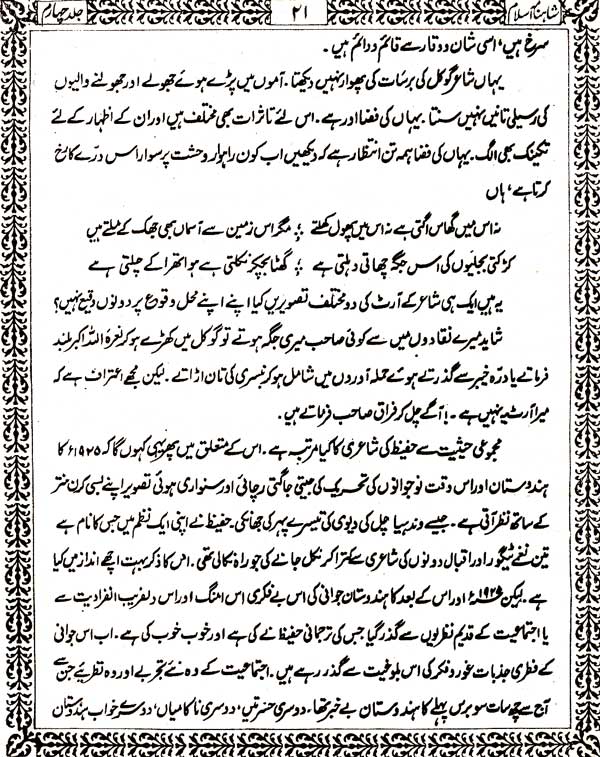 شاہنامۂ اسلام ۲۱ جلد چہارم
سرخ ہیں، اسی شان و وقار سے قائم و دائم ہیں۔
یہاں شاعر گوکل کی برسات کی پھوار نہیں دیکھتا۔ آموں میں پڑے ہوئے جھولے اور جھولنے والیوں
کی رسیلی تانیں نہیں سنتا۔ یہاں کی فضا اور ہے۔ اس لئے تاثرات بھی مختلف ہیں اور ان کے اظہار کے لئے
تکنیک بھی الگ۔ یہاں کی فضا ہمہ تن انتظار ہے کہ دیکھیں اب کون راہوارِ وحشت پر سوار اس درّے کا رخ
کرتا ہے، ہاں
نہ اس میں گھاس اگتی ہے نہ اس میں پھول کھلتے ؛ مگر اس زمین سے آسماں بھی جھک کے ملتے ہیں
کڑکتی بجلیوں کی اس جگہ چھاتی دہلتی ہے ؛ گھٹا بچکر نکلتی ہے ہوا تھرا کے چلتی ہے
یہ ہیں ایک ہی شاعر کے آرٹ کی دو مختلف تصویریں کیا اپنے اپنے محل و قوع پر دونوں وقیع نہیں؟
شاید میرے نقادوں میں سے کوئی صاحب میری جگہ ہوتے تو گوکل میں کھڑے ہو کر نعرۂ اللہ اکبر بلند
فرماتے یا درّہ خیبر سے گذرتے ہوئے حملہ آوروں میں شامل ہو کر بنسری کی تان اڑاتے۔ لیکن مجھے اعتراف ہے کہ
میرا آرٹ یہ نہیں ہے۔ آگے چل کر فراق صاحب فرماتے ہیں۔
مجموعی حیثیت سے حفیظ کی شاعری کا کیا مرتبہ ہے۔ اس کے متعلق میں پھر یہی کہوں گا کہ ۱۹۲۵ء کا
ہندوستان اور اس وقت نوجوانوں کی تحریک کی جیتی جاگتی رچائی اور سنواری ہوئی تصویر اپنے بسی کرن منتر
کے ساتھ نظر آتی ہے۔ جیسے وندھیا چل کی دیوی کی تیسرے پہر کی جھانکی۔ حفیظ نے اپنی ایک نظم میں جس کا نام ہے
تین نغمے ٹیگور اور اقبال دونوں کی شاعری سے کترا کر نکل جانے کی جو راہ نکالی تھی۔ اس کا ذکر بہت اچھے انداز میں کیا
ہے۔ لیکن ۱۹۲۵ء اور اس کے بعد کا ہندوستان جوانی کی اس بے فکری اس امنگ اور اس دلفریب انفرادیت سے
یا اجتماعیت کے قدیم نظریوں سے گذر گیا جس کی ترجمانی حفیظ نے کی ہے اور خوب خوب کی ہے۔ اب اس جوانی
کے فطری جذبات غور و فکر کی اس بلوغیت سے گذر رہے ہیں۔ اجتماعیت کے وہ نئے تجربے اور وہ نظریئے جن سے
آج سے چھ سات سو برس پہلے کا ہندوستان بے خبر تھا۔ دوسری حسرتیں، دوسری ناکامیاں، دوسرے خواب ہندوستان